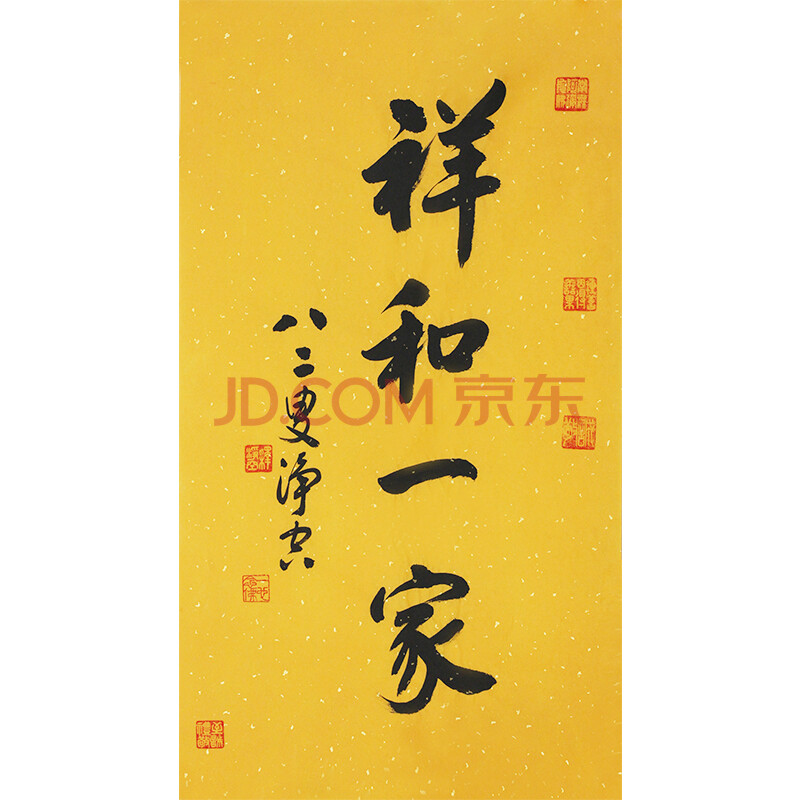 祥和一家
八二叟净空
JD.COM 京东